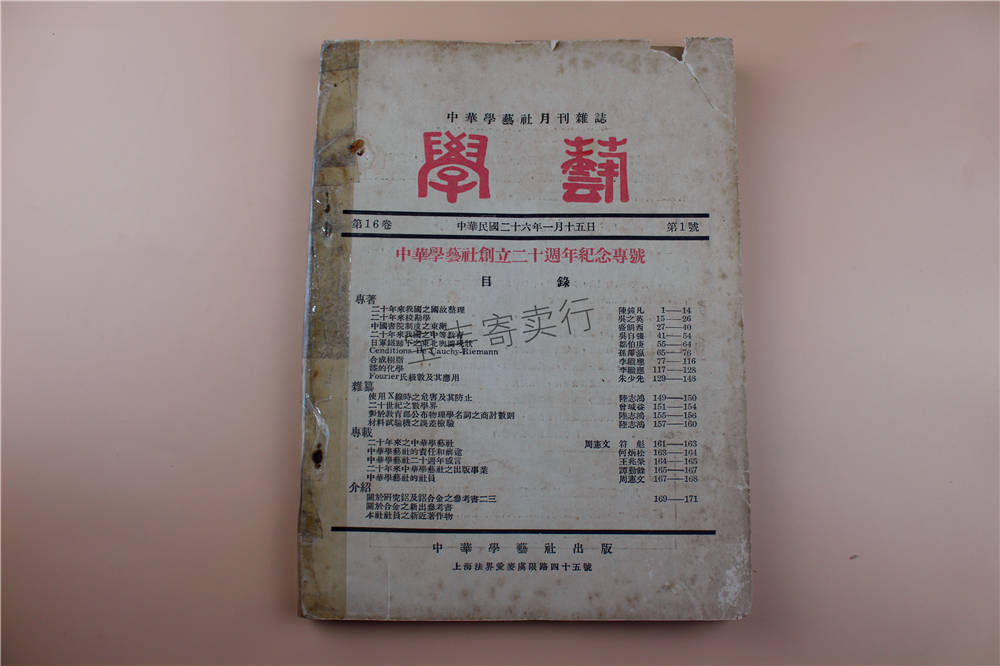 中華學藝社月刊雜誌
學藝
第16卷 中華民國二十六年一月十五日 第1號
中華學藝社創立二十週年紀念專號
目錄
專著
二十年來我國之國故整理 陳鐘凡 1—14
二十年來校勘學 吳之英 15—26
中國書院制度之 盛朗西 27—40
二十年來我國之中等教育 吳自強 41—54
日軍 下之東北輿 現狀 55—64
Conditions De Cauchy-Riemann 65—76
合成樹脂 77—116
漆的化學 117—128
Fourier氏級數及其應用 朱少先 129—148
雜纂
使用X線時之危害及其防止 陸志鴻 149—150
二十世紀之數學界 曾瑊益 151—154
對於教育部公布物理學名詞之商討數則 陸志鴻 155—156
材料試驗機之誤差檢驗 陸志鴻 157—160
專載
二十年來之中華學藝社 周憲文 符彪 161—163
中華學藝社的責任和前途 何炳松 163—164
中華學藝社二十週年感言 王兆榮 164—165
二十年來中華學藝社之出版事業 譚勤餘 165—167
中華學藝社的社員 周憲文 167—168
介紹
關於研究鋁及鋁合金之參考書二三 169—171
關於合金之新出參考書
本社社員之新近著作物
中華學藝社出版
上海法界愛麥虞限路四十五號
寄卖行